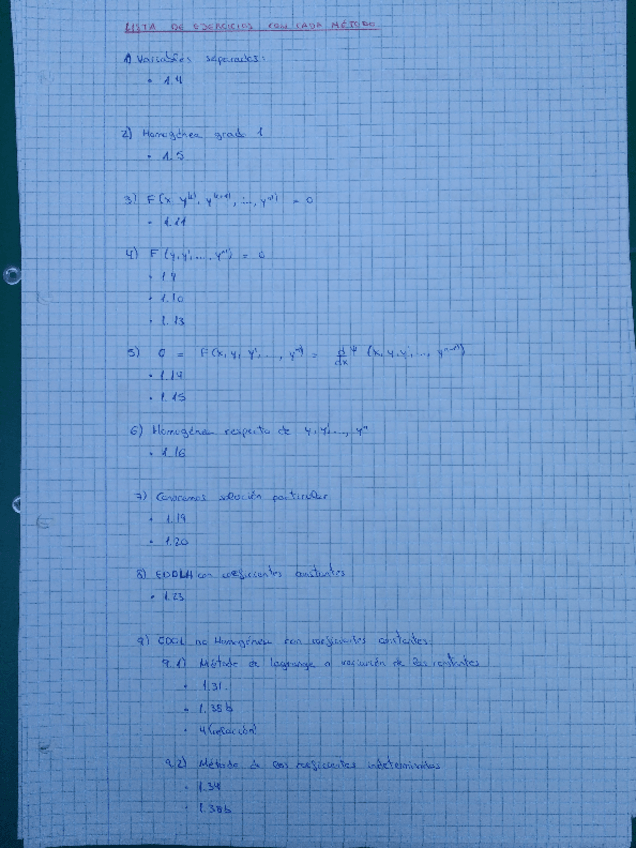 LISTA DE EJERCICIOS CON CADA MÉTODO
1) Variables separadas:
• 1.4
2) Homogénea grado 1
• 1.5
3) F(x, y^(k), y^(k+1), ..., y^(n)) = 0
• 1.11
4) F(y, y', ..., y^n) = 0
• 1.10
• 1.13
5) 0 = F(x, y, y', ..., y^n) = d/dx φ(x, y, y', ..., y^(n-1))
• 1.14
• 1.15
6) Homogénea respecto de y, y', ..., y^n
• 1.16
7) Conocemos solución particular
• 1.19
• 1.20
8) EDOLH con coeficientes constantes
• 1.23
9) EDOL no Homogénea con coeficientes constantes
9.1) Método de Lagrange o variación de las constantes
• 1.31
• 1.38b
9.2) Método de los coeficientes indeterminados
• 1.34
• 1.38b